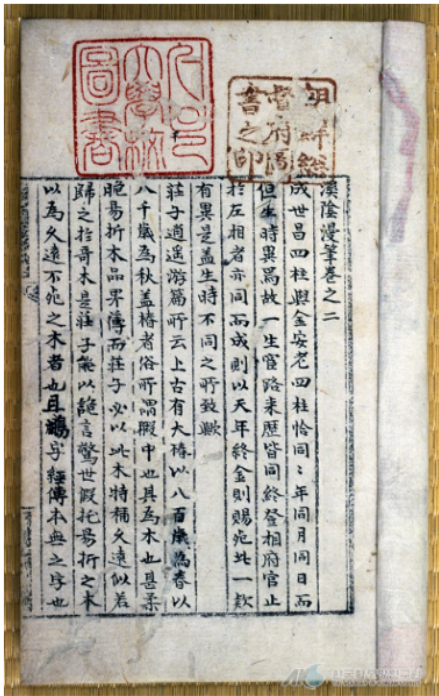 朝鮮総
督府圖
書之印
서울
大學校
圖書
溪陰漫筆卷之二
成世昌四柱與金安老四柱恰同〻年同月同日而
但生時異焉故一生官路来歷皆同終登相府官止
於左相者亦同而成則以天年終金則賜死此一款
有異是盖生時不同之所致歟
莊子逍遥游篇所云上古有大椿以八百歲為春以
八千歲為秋盖椿者俗所謂假中也其為木也甚柔
脆易折本品界薄而莊子必以此木特稱久遠似若
歸之於奇木是莊子無以詭言驚世假托易折之木
以為久遠不死之木者也且鵬字經傳本無之字也
한국학중앙연구원